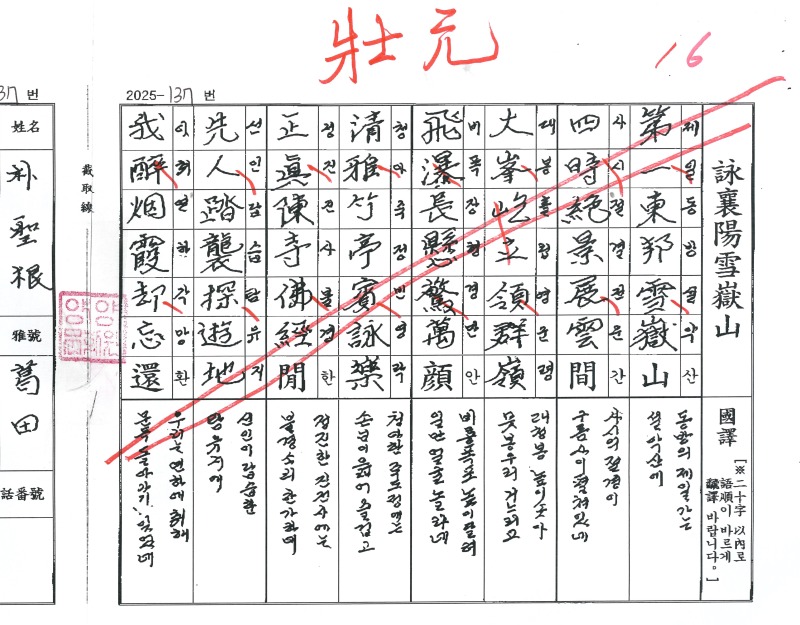 壯元
16
2025-137 번
詠襄陽雪嶽山
國譯
[※二十字 以內로
語順이 바르게
飜譯 바랍니다。]
第一東邦雪嶽山
제일동방설악산
동방의 제일가는
설악산에
四時絕景展雲間
사시절경전운간
사시의 절경이
구름사이 펼쳐있네
大峯屹立領群嶺
대봉흘립영군령
대청봉 높이솟아
뭇봉우리 거느리고
飛瀑長懸驚萬顔
비폭장현경만안
비룡폭포 높이 달려
일만얼굴 놀라네
清雅竹亭賓詠樂
청아죽정빈영락
청아한 죽도정에는
손님이 읊어 즐겁고
正眞陳寺佛經閒
정진진사불경한
정진한 진전사에는
불경소리 한가하며
先人踏襲探遊地
선인답습탐유지
선인이 답습한
탐유지에
我醉烟霞却忘還
취연하각망환
우리는 연하에 취해
문득 돌아가기 잊었네
截取線
37 번
姓名
朴聖根
雅號
葛田
話番號